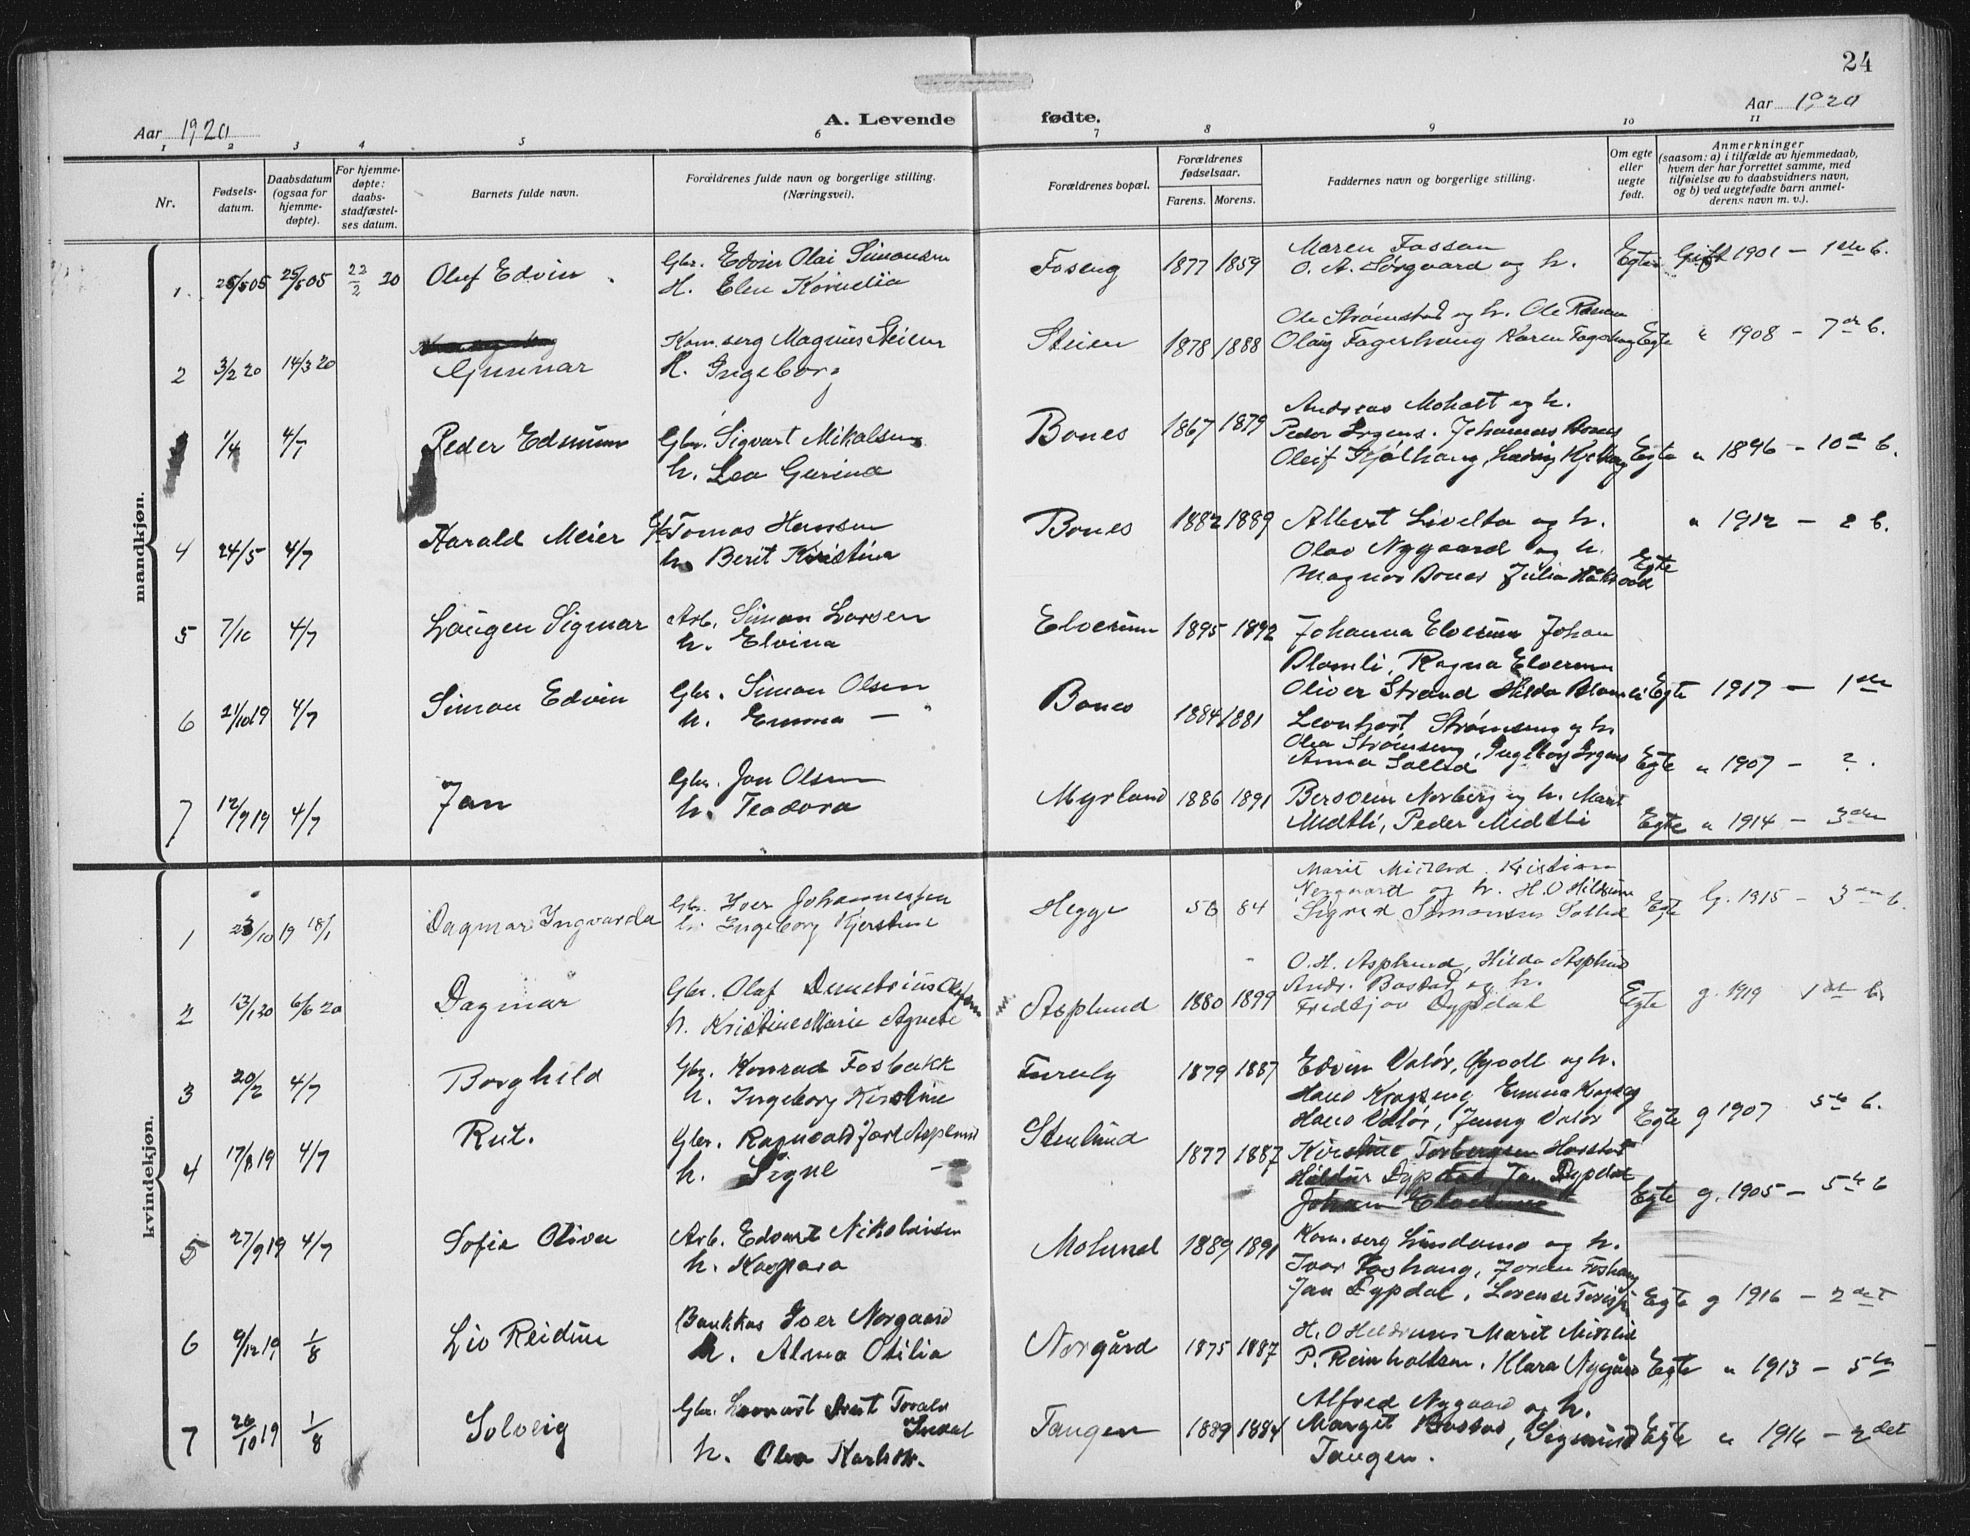 24
Aar 1920
A. Levende fødte.
Aar 1920
1 2 3 4 5 6 7 8 9 10 11
Nr.
Fødsels-
datum.
Daabsdatum
(ogsaa for
hjemme-
døpte).
For hjemme-
døpte:
daabs-
stadfæstel-
ses datum.
Barnets fulde navn.
Forældrenes fulde navn og borgerlige stilling.
(Næringsvei).
Forældrenes bopæl.
Forældrenes
fødselsaar.
Farens. Morens.
Faddernes navn og borgerlige stilling.
Om egte
eller
uegte
født.
Anmerkninger
(saasom: a) i tilfælde av hjemmedaab,
hvem der har forrettet samme, med
tilføielse av to daabsvidners navn,
og b) ved uegtefødte barn anmel-
derens navn m. v.).
mandkjøn.
1. 25/5 05 25/5 05 22/2 20 Oluf Edvin Gbr. Edvin Olai Simonsen
H. Elen Kornelia
Foseng 1877 1859 Maren Fossan
O. A. Sørgaard og h. Egte Gift 1901 — 1ste b.
2 3/2 20 14/3 20 Gunnar Kom.serg Magnus Steien
h. Ingeborg
Steien 1878 1888 Ole Strømstad og h. Ole
Olaug Fagerhaug Karen Egte " 1908 — 7de b.
1/4 4/7 Peder Edmunn Gbr. Sigvart Mikalsen
h. Lea Gurina
Bones 1867 1879 Andreas Moholt og h.
Peder Irgens. Johannes Bones
Egte " 1896 — 10de b.
4 24/5 4/7 Harald Meier Tomas Hansen
h. Berit Kristina
Bones 1882 1889 Albert Livelta og h.
Olav Nygaard og h.
Magnus Bones Julia
Egte " 1912 — 2 b.
5 7/10 4/7 Laugen Sigmar Arb. Simon Larsen
h. Elvina
Elverum 1895 1892 Johanna Elverum Johan
Blomli, Ragna Elverum
Oliver Strand Hilda Blomli Egte 1917 — 1ste
6 21/10 19 4/7 Simon Edvin Gbr. Simon Olsen
h. Emma — "
Bones 1884 1881 Leonhart Strømseng og h.
Olea Strømseng, Ingeborg Irgens
Anna Sollid Egte " 1907 — ?.
7 12/9 19 4/7 Jan Gbr. Jon Olsen
h. Teodora
Myrland 1886 1891 Bersvein Norberg og h. Marit
Midtli, Peder Midtli Egte " 1914 — 3die
kvindekjøn.
1 23/10 19 18/1 Dagmar Ingvarda Gbr. Iver Johannessen
h. Ingeborg Kjerstine
Hegge 56 84 Marit Kristian
Norgaard og h. H. O Hildrum
Sigrid Simonsen Sollid Egte G. 1915 — 3die b.
2 13/1 20 6/6 20 Dagmar Gbr. Olaf Demetrius
h. Kristine Marie Agnete
Asplund 1880 1899 O. H. Asplund, Hilda Asplund
Andr. Bostad og h.
Fridtjov Dypdal Egte g. 1919 1ste b.
3 20/2 4/7 Borghild Gbr. Konrad Fosbakk
h. Ingeborg Kirstine
Furuly 1879 1887 Edvin Valør, og h.
Hans Kragseng Emma
Hans Valør, Jenny Valør Egte g 1907 5te b.
4 17/8 19 4/7 Rut. Gbr. Ragnvald Jarl Asplund
h. Signe —"
Stenlund 1877 1887 Kirstine Torbergsen
Hildur Dypdal Jan Dypdal
Johan Elverum Egte g. 1905 — 5te b
5 27/9 19 4/7 Sofie Oliva Arb. Edvart Nikolaisen
h. Kaspara
Molund 1889 1891 Kom.serg Lundamo og h.
Ivar Foshaug, Jorun Foshaug
Jan Dypdal, Lorense Egte g 1916 — 2det
6 9/12 19 1/8 Liv Reidun Bankkas Iver Norgaard
h. Alma Otilia
Norgård 1875 1887 H. O Hildrum Marit Midtlid
P. Reinholtsen, Klara Nygård Egte " 1913 — 5te
7 26/10 19 1/8 Solveig Gbr. Toralv
Indal
h. Olea
Tangen 1889 1884 Alfred Nygaard og h.
Margit Bostad, Sigmund
Tangen. Egte " 1916 — 2det